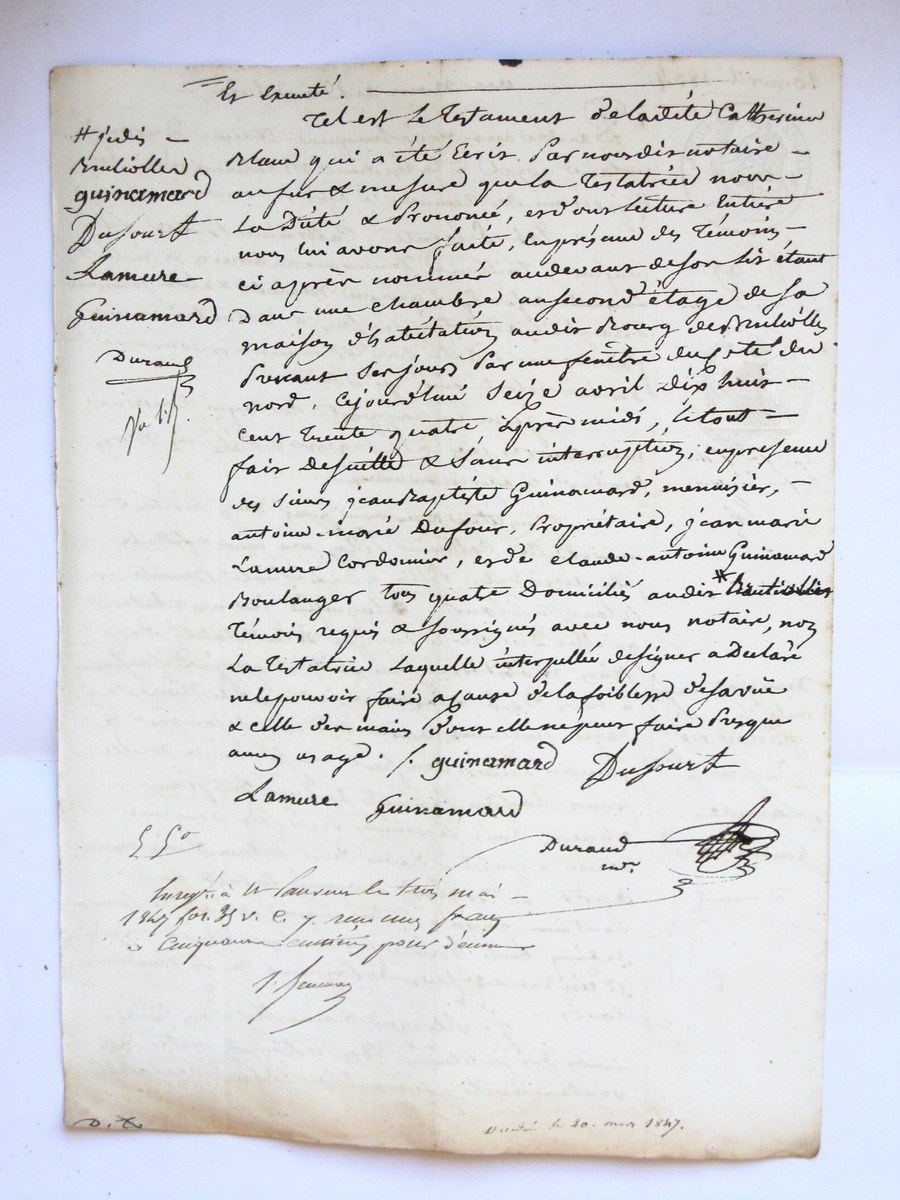 Et Exeuté.
Tel est le testament de ladite Catherine
Blanc qui a été Ecrit Par nousdit notaire
au fur & mesure que la Testatrice nous
La Dité & Prononcé, et dont lecture Entière
nous lui avons faite, En présence des Témoins
ci après nommés audevant de son lit étant
Dans une chambre ausecond étage de sa
maison d'habitation audit Bourg de Brulioles
Prenant ses jours Par une fenêtre du côté du
nord, Cejourd'hui Seize avril Dix huit
cent trente quatre après midi, le tout
fait de suitte & sans interruption, en présence
des sieurs jean Baptiste Guinamard, menuisier,
antoine-marie Dufour, Propriétaire, jean marie
Lamure Cordonier, et de claude-antoine Guinamard
Boulanger tous quatre Domiciliés audit #
Témoins requis & soussignés avec nous notaire, non
La Testatrice Laquelle interpellée de signer a Déclaré
ne le pouvoir faire a cause de la foiblesse de sa vüe
& celle des mains dont elle ne peut faire Presque
aucun usage. /. guinamard Dufourt
Lamure Guinamard
Durand
nre.
# jedis
Brulioles
guinamard
Dufourt
Lamure
Guinamard
Durand
Enregt. à St Laurent le trois mai
1847 fol. 35 v. c. 7. reçu cinq francs
& Cinquante centimes pour décime
D.t.
le 20. mars 1847.